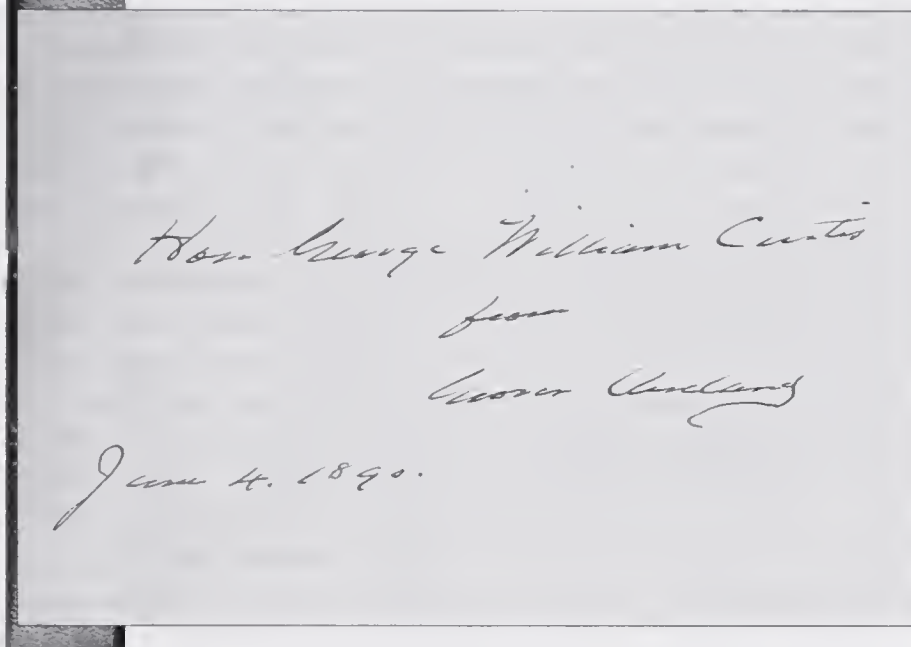 Hon George William Curtis
from
Grover Cleveland
June 4. 1890.